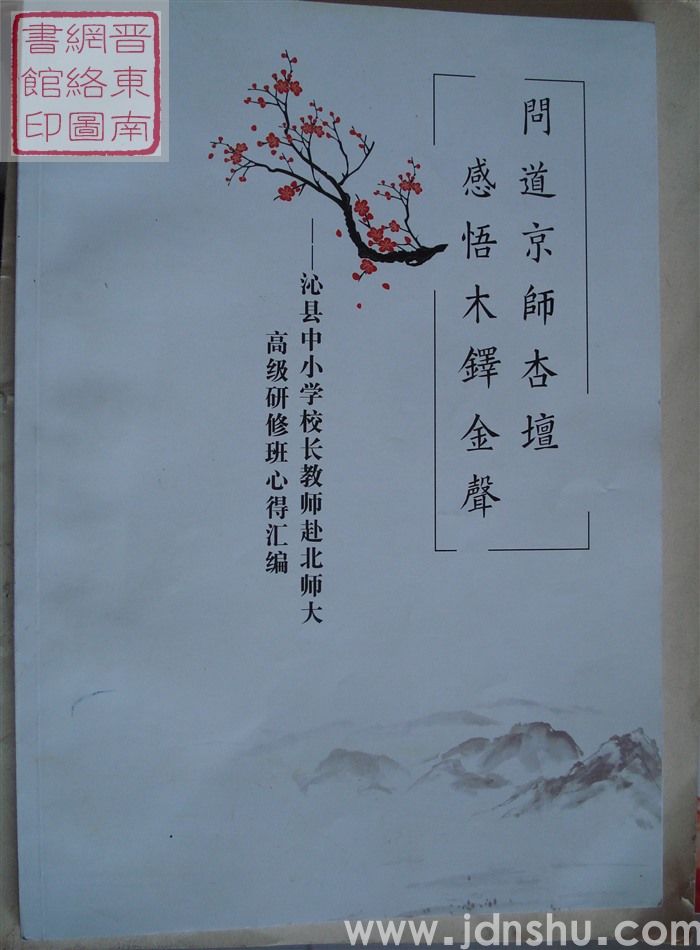 問道京師杏壇
感悟木鐸金聲
——沁县中小学校长教师赴北师大
高级研修班心得汇编
晋東南
網絡圖
書館印
www.jdnshu.com